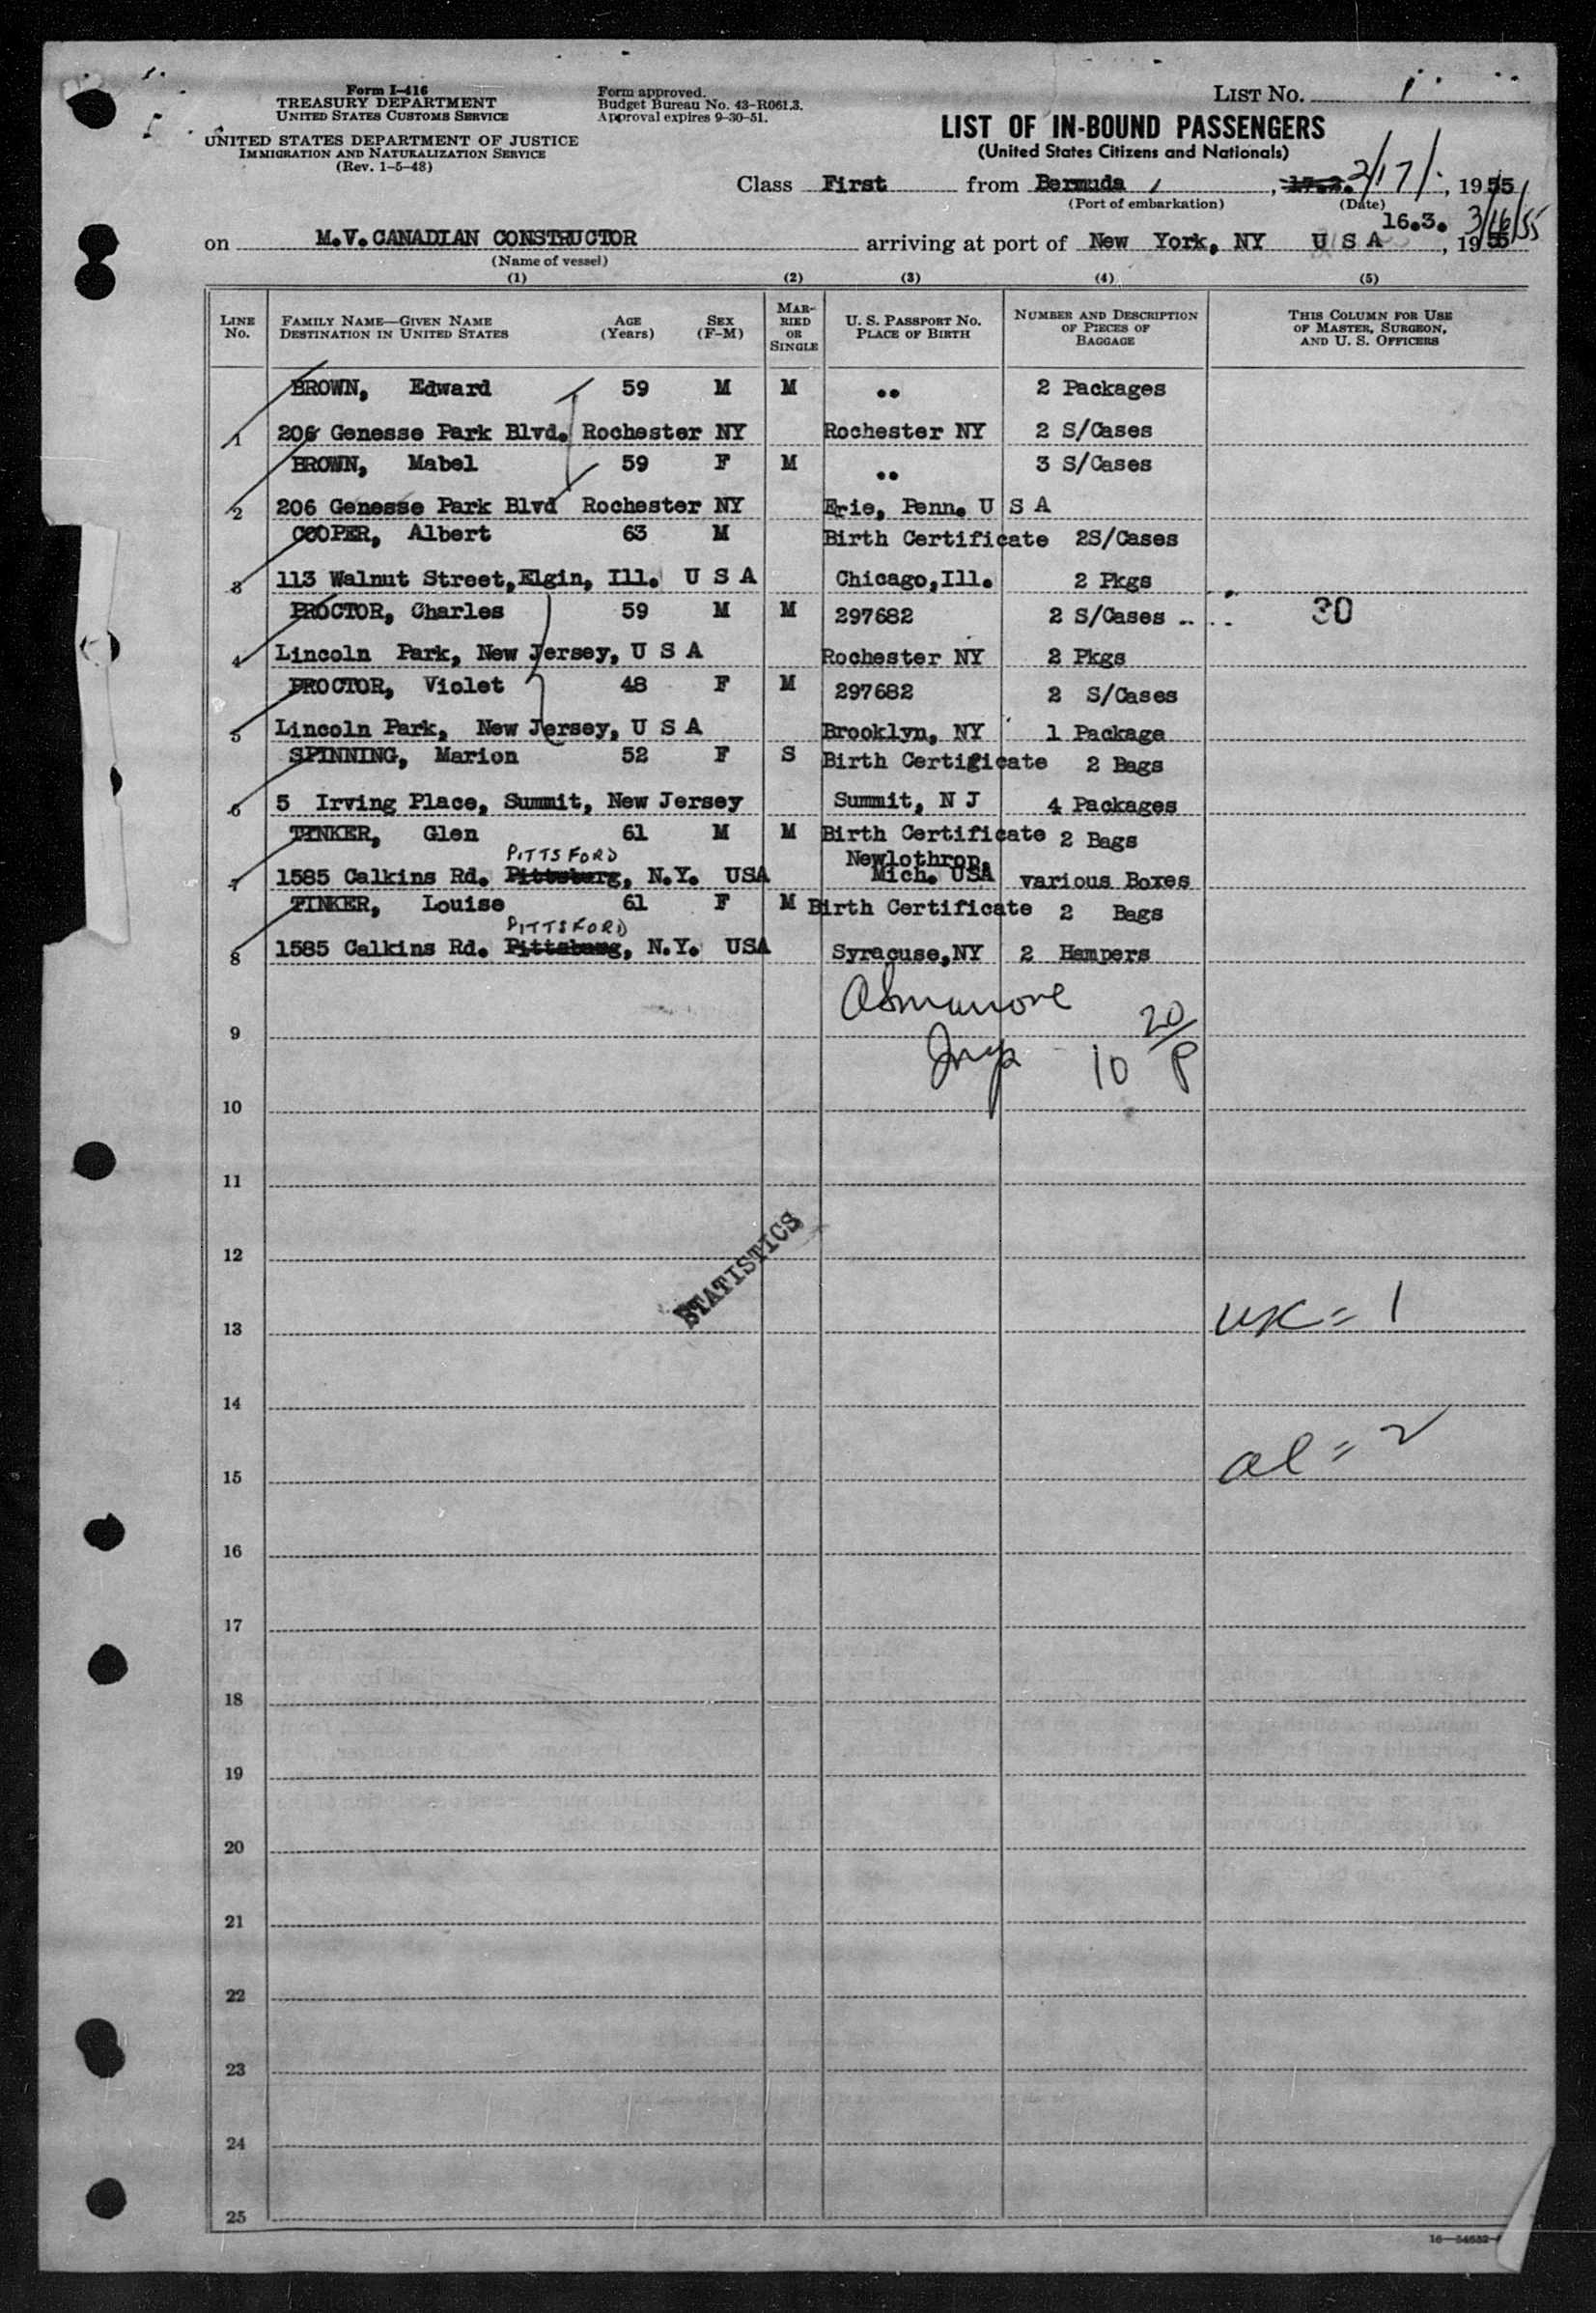 Form I-416
TREASURY DEPARTMENT
UNITED STATES CUSTOMS SERVICE
UNITED STATES DEPARTMENT OF JUSTICE
IMMIGRATION AND NATURALIZATION SERVICE
(Rev. 1-5-48)
Form approved.
Budget Bureau No. 43-R061.3.
Approval expires 9-30-51.
LIST No. 1
LIST OF IN-BOUND PASSENGERS
(United States Citizens and Nationals)
Class First from Bermuda, 3/17/, 1955
(Port of embarkation) (Date)
16.3. 3/16/55
on M.V. CANADIAN CONSTRUCTOR arriving at port of New York, NY U S A, 1955
(Name of vessel)
(1) (2) (3) (4) (5)
LINE No. FAMILY NAME—GIVEN NAME DESTINATION IN UNITED STATES AGE (Years) SEX (F-M) MARRIED OR SINGLE U. S. PASSPORT No. PLACE OF BIRTH NUMBER AND DESCRIPTION OF PIECES OF BAGGAGE THIS COLUMN FOR USE OF MASTER, SURGEON, AND U. S. OFFICERS
BROWN, Edward 59 M M .. 2 Packages
1 206 Genesse Park Blvd. Rochester NY Rochester NY 2 S/Cases
BROWN, Mabel 59 F M .. 3 S/Cases
2 206 Genesse Park Blvd Rochester NY Erie, Penn. U S A
COOPER, Albert 63 M Birth Certificate 2S/Cases
3 113 Walnut Street, Elgin, Ill. U S A Chicago, Ill. 2 Pkgs
PROCTOR, Charles 59 M M 297682 2 S/Cases .. .. 30
4 Lincoln Park, New Jersey, U S A Rochester NY 2 Pkgs
PROCTOR, Violet 48 F M 297682 2 S/Cases
5 Lincoln Park, New Jersey, U S A Brooklyn, NY 1 Package
SPINNING, Marion 52 F S Birth Certificate 2 Bags
6 5 Irving Place, Summit, New Jersey Summit, N J 4 Packages
TINKER, Glen 61 M M Birth Certificate 2 Bags
PITTSFORD Newlothrop,
7 1585 Calkins Rd. Pittsburg, N.Y. USA Mich. USA various Boxes
TINKER, Louise 61 F M Birth Certificate 2 Bags
PITTSFORD
8 1585 Calkins Rd. Pittsburg, N.Y. USA Syracuse, NY 2 Hampers
9
20/P
10
10
11
12
STATISTICS
13 UK = 1
14
15 al = 2
16
17
18
19
20
21
22
23
24
25